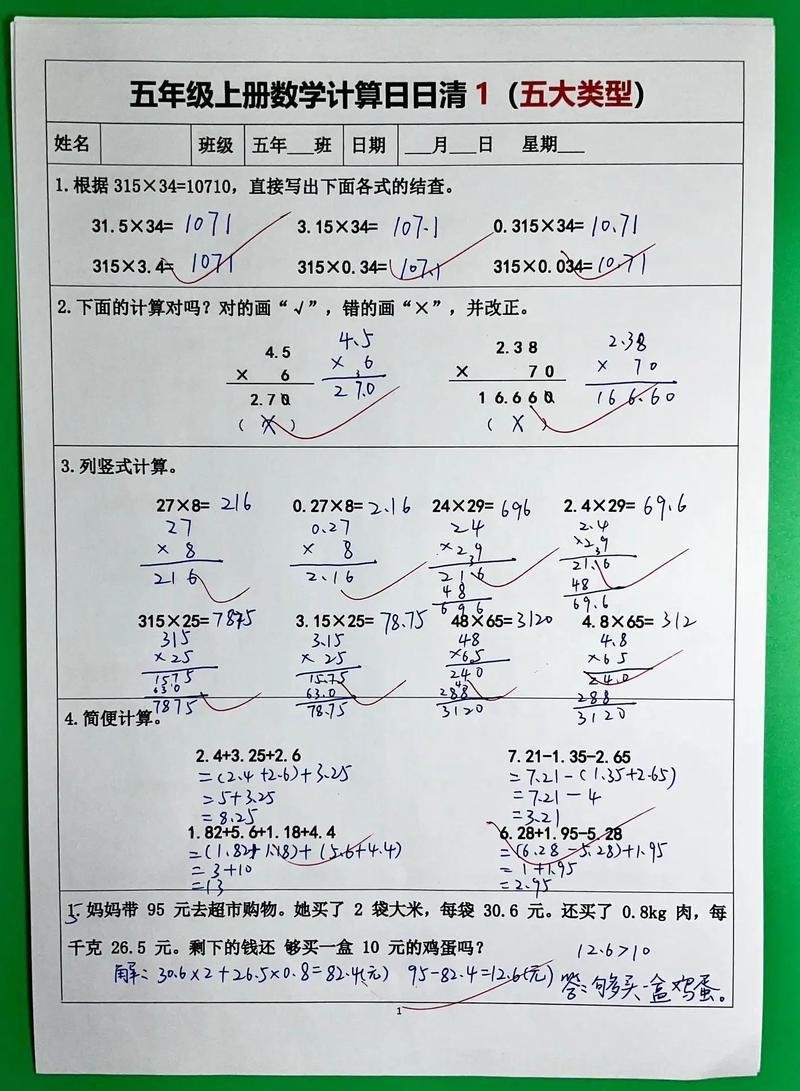 五年级上册数学计算日日清 1（五大类型）
姓名 班级 五年___班 日期 ___月___日 星期___
1.根据 315×34=10710，直接写出下面各式的结查。
31.5×34= 1071 3.15×34= 107.1 0.315×34= 10.71
315×3.4= 1071 315×0.34= 107.1 315×0.034= 10.71
2.下面的计算对吗？对的画“√”，错的画“×”，并改正。
4.5 4.5 2.38 2.38
× 6 × 6 × 70 × 70
2.70 27.0 16.660 166.60
（ X ） （ X ）
3.列竖式计算。
27×8= 216 0.27×8= 2.16 24×29= 696 2.4×29= 69.6
27 0.27 24 2.4
× 8 × 8 ×29 ×29
216 2.16 216 21.6
48 48
696 69.6
315×25= 7875 3.15×25= 78.75 48×65= 3120 4.8×65= 312
315 3.15 48 4.8
×25 × 25 ×65 ×65
1575 15.75 240 24.0
630 63.0 288 288
7875 78.75 3120 3120
4.简便计算。
2.4+3.25+2.6 7.21-1.35-2.65
=(2.4+2.6)+3.25 =7.21-(1.35+2.65)
=5+3.25 =7.21-4
=8.25 =3.21
1.82+5.6+1.18+4.4 6.28+1.95-5.28
=(1.82+1.18)+(5.6+4.4) =(6.28-5.28)+1.95
=3+10 =1+1.95
=13 =2.95
5.妈妈带 95 元去超市购物。她买了 2 袋大米，每袋 30.6 元。还买了 0.8kg 肉，每
千克 26.5 元。剩下的钱还 够买一盒 10 元的鸡蛋吗？ 12.6>10
解：30.6×2+26.5×0.8=82.4(元) 95-82.4=12.6(元) 答：够买一盒鸡蛋。
1